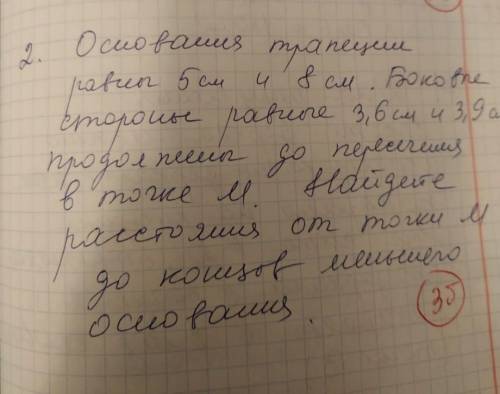 2. Основания трапеции
равны 5 см и 8 см. Боковые
стороны равные 3,6 см и 3,9 с
продолжены до пересечения
в точке М. Найдите
расстояния от точки М
до концов меньшего
основания.
3б